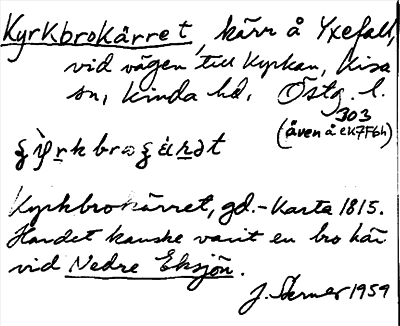 Kyrkbrokärret, kärr å Yxefall,
vid vägen till Kyrkan, Kisa
sn, Kinda hd. Östg. l.
303
(även å EK7F6h)
Kyrkbrokärret, gd.-Karta 1815.
Har det kanske varit en bro här
vid Nedre Eksjön.
1959